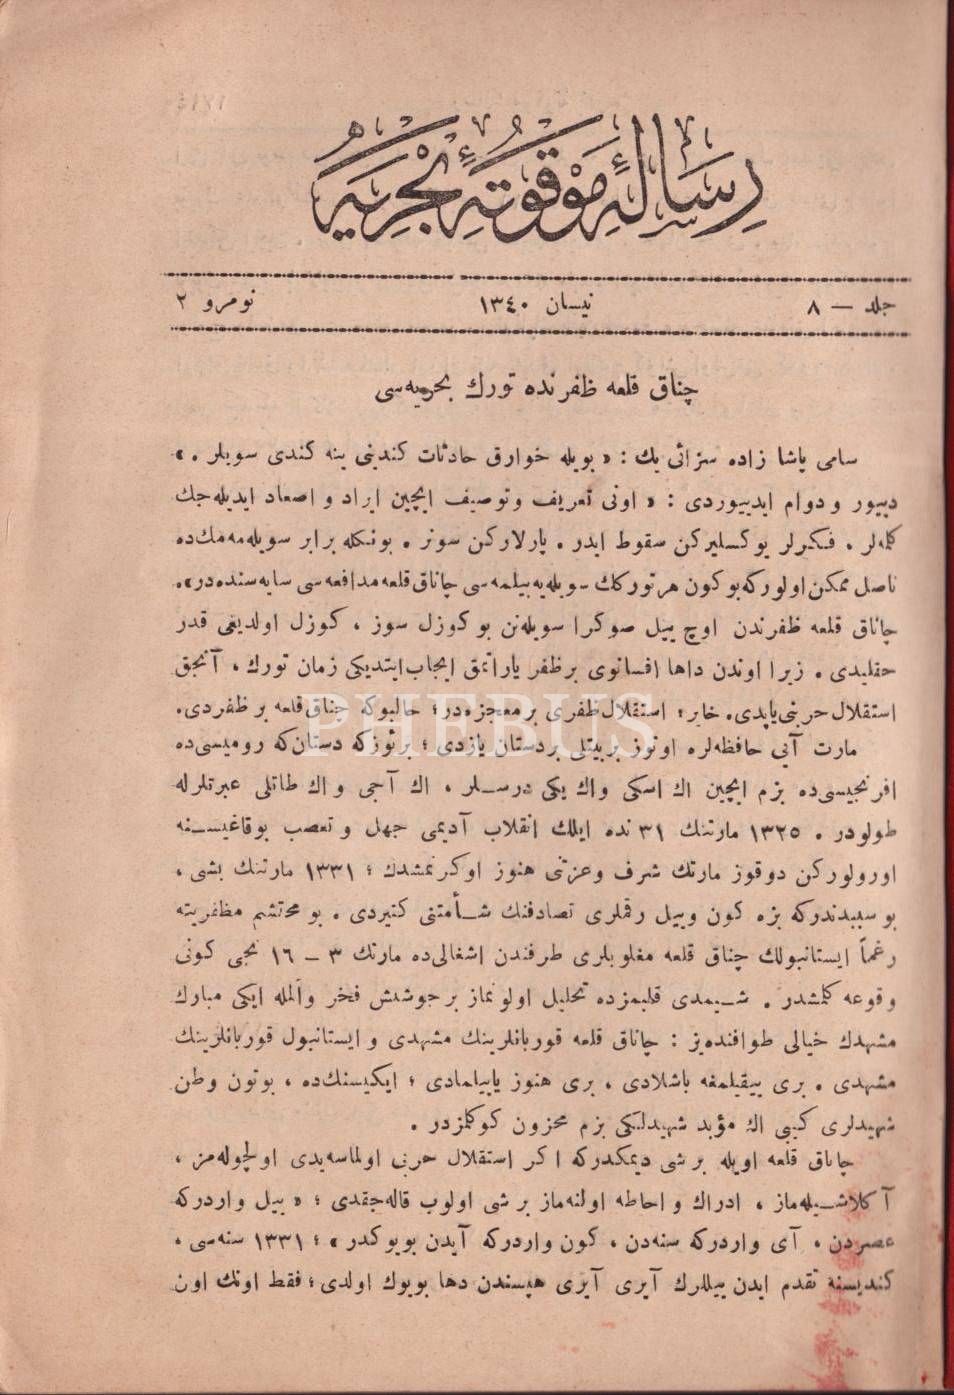 رسالهٔ موقوتهٔ بحریه
جلد — ٨ نیسان ١٣٤٠ نومرو ٢
چناق قلعه ظفرنده تورك بحریه‌سی
سامی پاشا زاده سزائی بك : « بویله خوارق حادثات كندینی ینه كندی سویلر . »
دییور و دوام ایدییوردی : « اونی تعریف و توصیف ایچین ایراد و اصعاد ایدیله‌جك
كله‌لر ، فكرلر یوكسلیركن سقوط ایدر . پارلاركن سونر . بونكله برابر سویله‌مه‌مك‌ده
ناصل ممكن اولور كه بوكون هر تورك‌ك سویله‌یه‌بیلمه‌سی چاناق قلعه مدافعه‌سی سایه سنده‌در » .
چاناق قلعه ظفرندن اوچ ییل صوكرا سویله‌نن بو كوزل سوز ، كوزل اولدیغی قدر
حقلیدی . زیرا اوندن داها افسانوی بر ظفر یاراتمق ایجاب ایتدیكی زمان تورك ، آنجق
استقلال حربنی یاپدی . خایر ؛ استقلال ظفری بر معجزه‌در ؛ حالبوكه چناق قلعه بر ظفردی .
PHEBUS
مارت آیی حافظه‌لره اوتوز بر بیتلی بر دستان یازدی ؛ بر توز كه دستان كه رومیسی‌ده
افرنجیسی‌ده بزم ایچین اك اسكی و اك یكی درسلر ، اك آجی و اك طاتلی عبرتلرله
طولودر . ١٣٢٥ مارتنك ٣١ نده ایلك انقلاب آدیمی جهل و تعصب بوقاغیسنه
اورولوركن دوقوز مارتك شرف و عزتنی هنوز اوكرنمشدك ؛ ١٣٣١ مارتنك بشی ،
بو سببدندر كه بزه كون وییل رقملری تصادفنك شأمتنی كتیردی . بو محتشم مظفریته
رغماً ایستانبولك چناق قلعه مغلوبلری طرفندن اشغالی‌ده مارتك ٣ – ١٦ نجی كونی
وقوعه كلمشدر . شیمدی قلبمزده تحلیل اولونماز بر جوشش فخر و ألمله ایكی مبارك
مشهدك خیالی طوافنده‌یز : چاناق قلعه قوربانلرینك مشهدی و ایستانبول قوربانلرینك
مشهدی . بری ییقیلمغه باشلادی ، بری هنوز یاپیلمادی ؛ ایكیسنك‌ده ، بوتون وطن
شهیدلری كبی اك مؤبد شهیدلكی بزم محزون كوكلمزدر .
چاناق قلعه اویله بر شی دیمكدر كه اكر استقلال حربی اولماسه‌یدی اولچوله‌مز ،
آكلاشیله‌ماز ، ادراك و احاطه اولنه‌ماز بر شی اولوب قاله‌جقدی ؛ « ییل واردر كه
عصردن ، آی واردر كه سنه‌دن ، كون واردر كه آیدن بویوكدر » ؛ ١٣٣١ سنه‌سی ،
كندیسنه تقدم ایدن ییللرك آیری آیری هپسندن دها بویوك اولدی ؛ فقط اونك اون